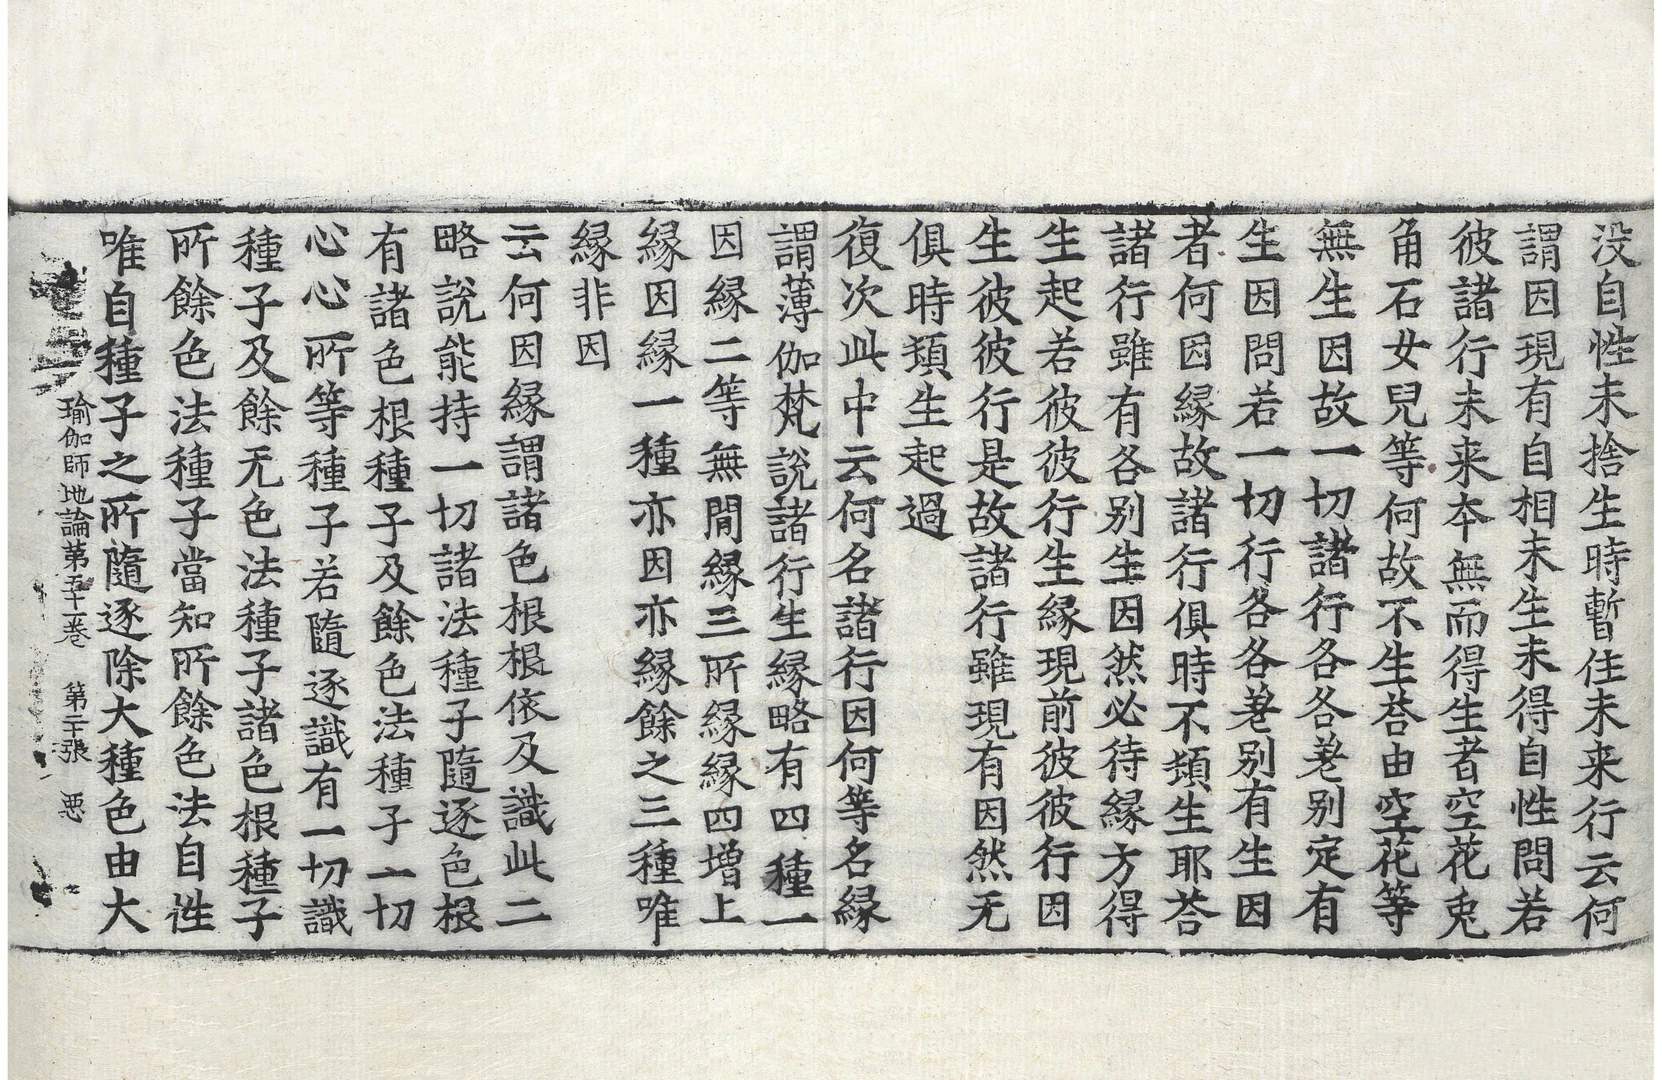 没自性未捨生時暫住未来行云何
謂因現有自相未生未得自性問若
彼諸行未来本無而得生者空花兎
角石女兒等何故不生荅由空花等
無生因故一切諸行各各差别定有
生因問若一切行各各差别有生因
者何因緣故諸行俱時不頓生耶荅
諸行雖有各别生因然必待緣方得
生起若彼彼行生緣現前彼彼行因
生彼彼行是故諸行雖現有因然无
俱時頓生起過
復次此中云何名諸行因何等名緣
謂薄伽梵説諸行生緣略有四種一
因緣二等無閒緣三所緣緣四増上
緣因緣一種亦因亦緣餘之三種唯
緣非因
云何因緣謂諸色根根依及識此二
略說能持一切諸法種子隨逐色根
有諸色根種子及餘色法種子一切
心心所等種子若隨逐識有一切識
種子及餘无色法種子諸色根種子
所餘色法種子當知所餘色法自性
唯自種子之所隨逐除大種色由大
瑜伽師地論第五十一卷 第二十張 惡